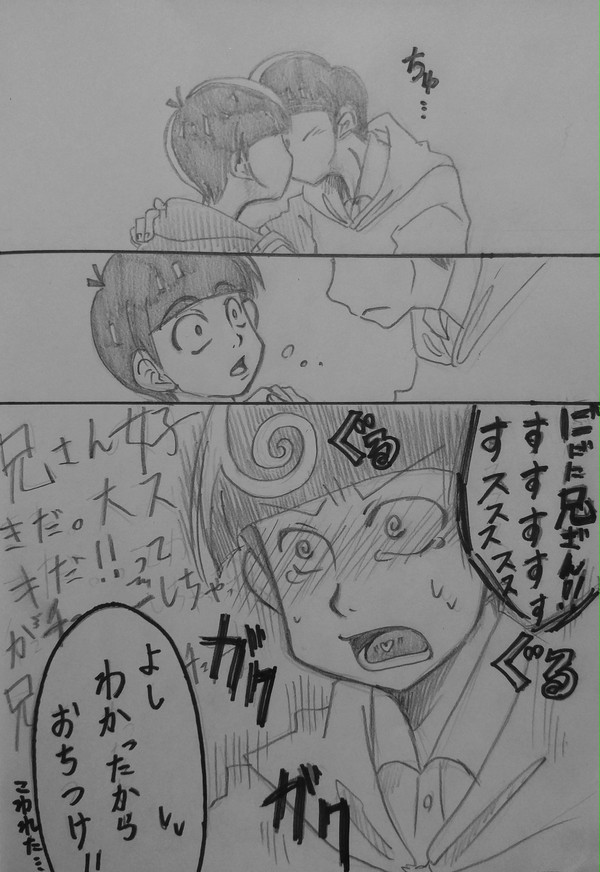 ちゅ…
ににに兄ざん!!
すすすすす
すスススス
ぐる
ぐる
兄さん好
きだ。大ス
キだ!!って
ガク
ガク
よし
わかったから
おちつけ!!
こわれた…